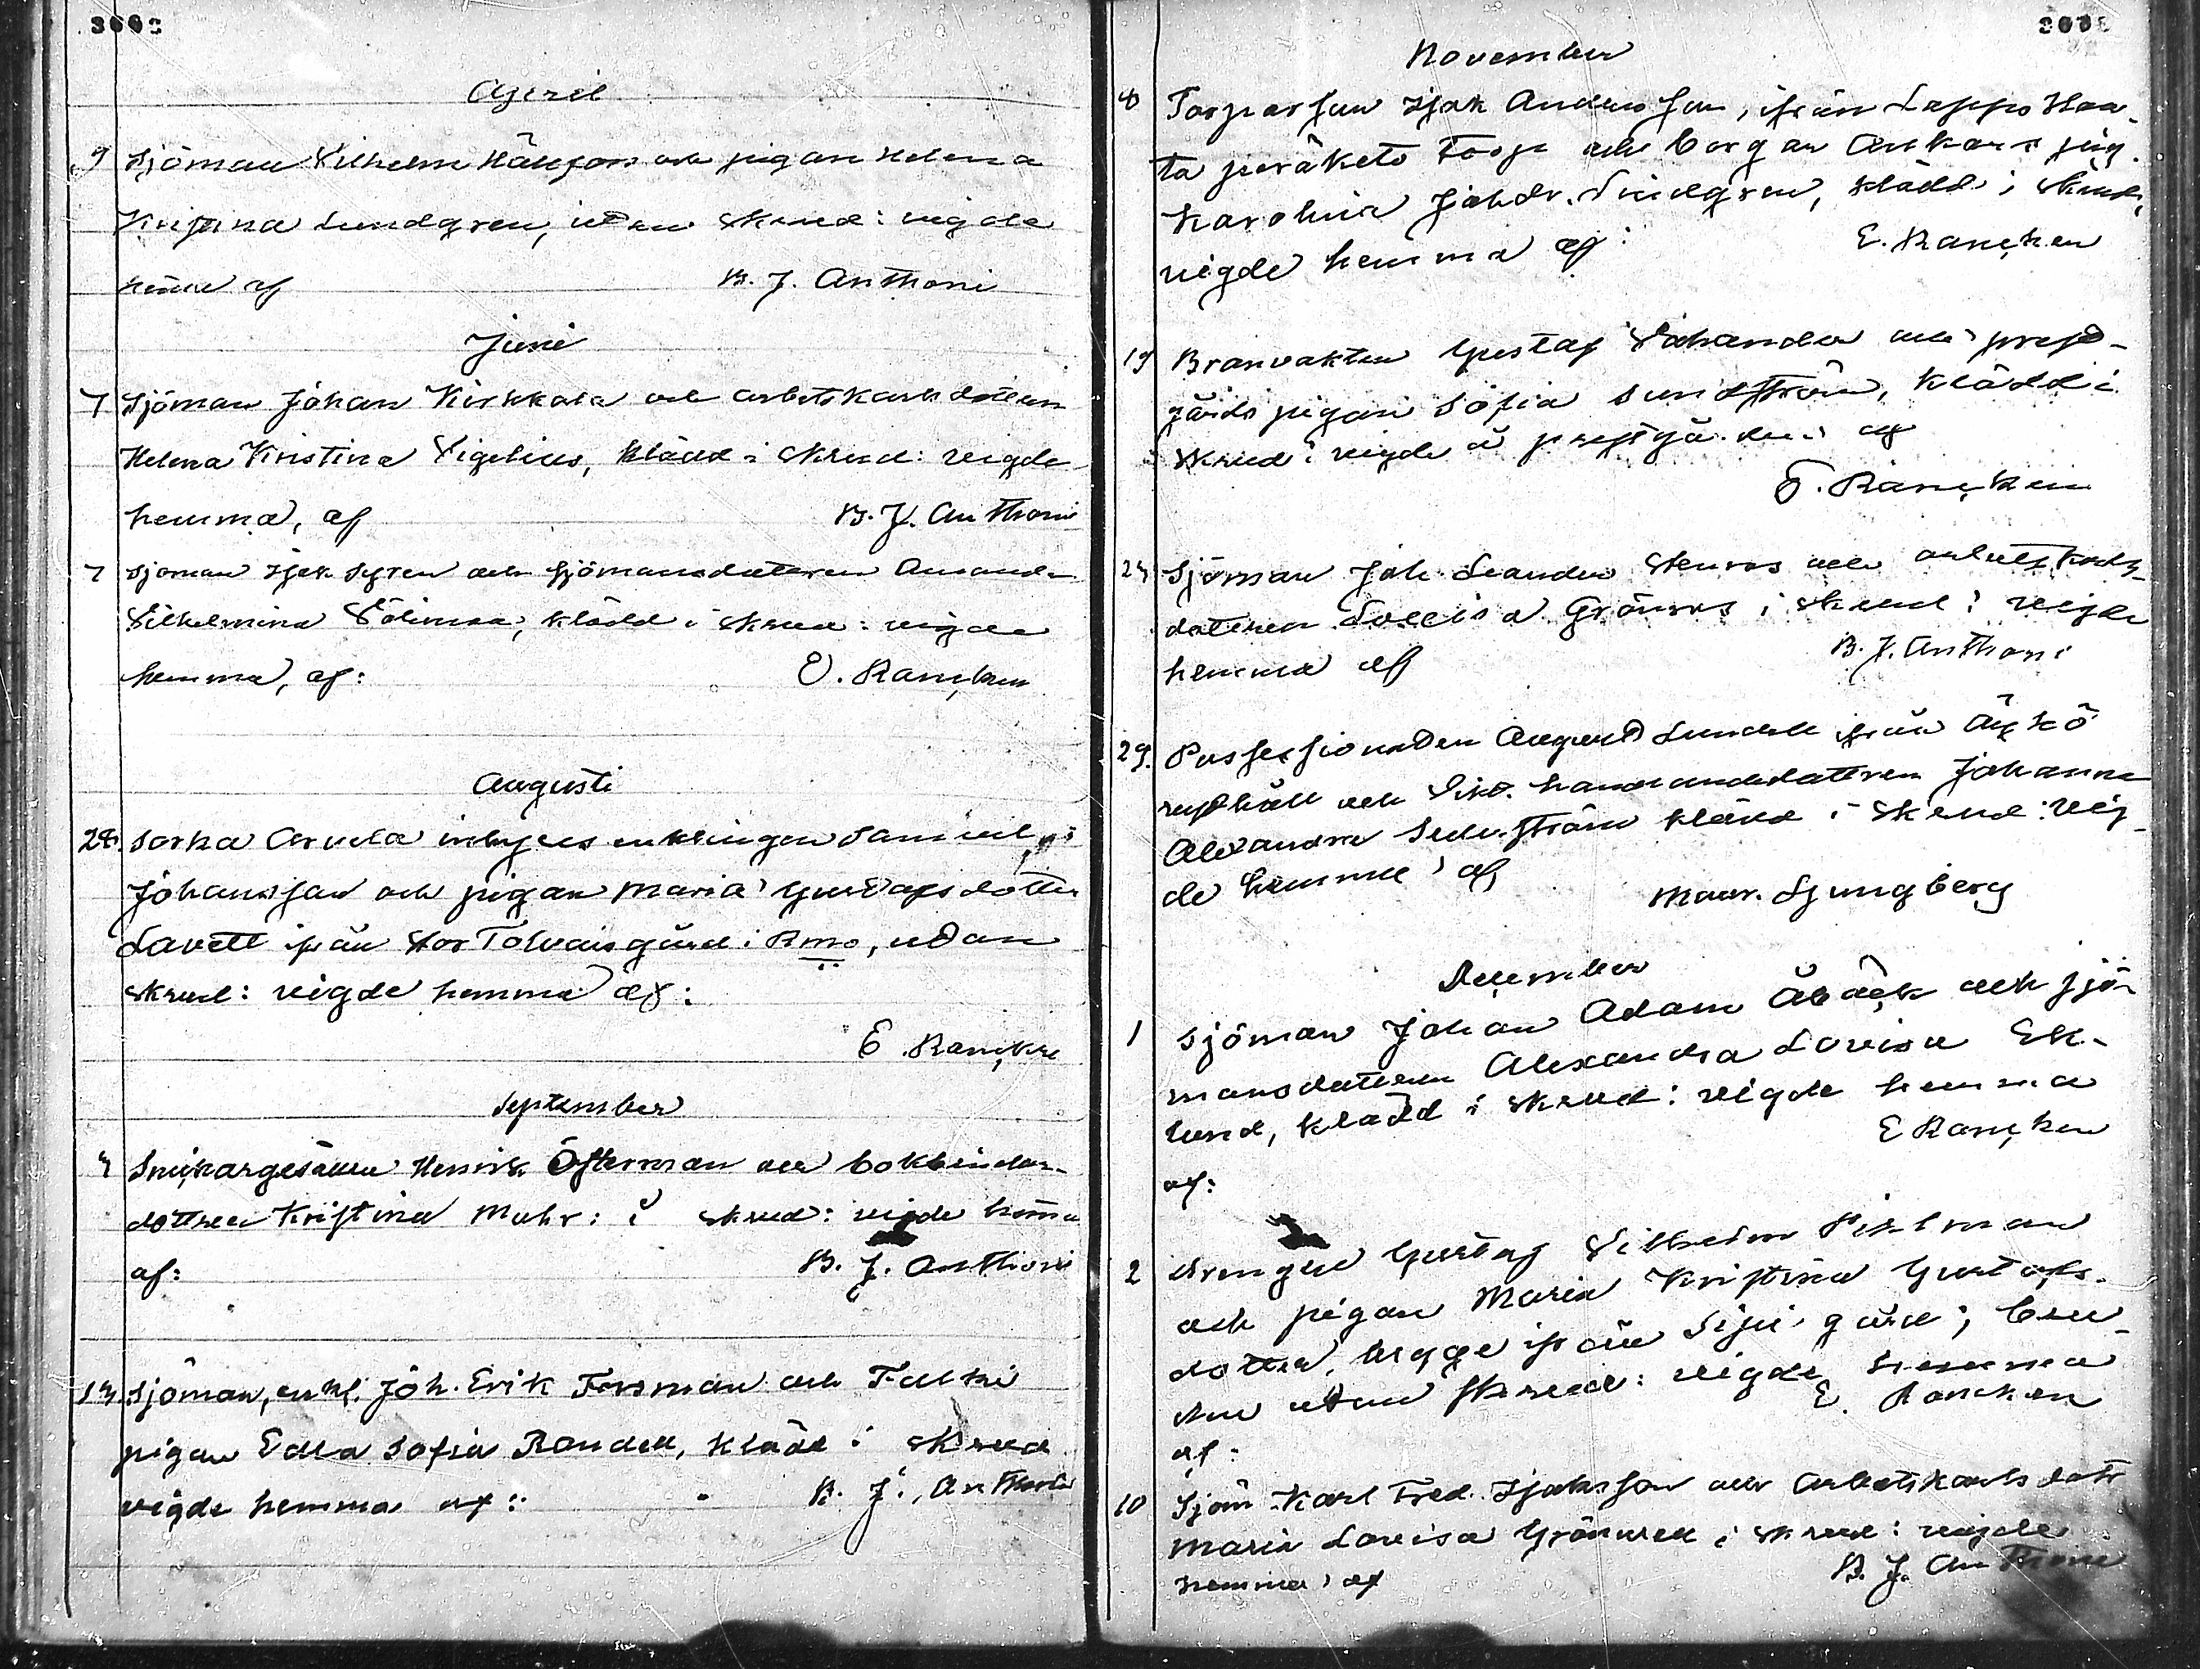 April
9 Sjöman Vilhelm Hällfors och pigan Helena
Kristina Lundgren, utan skrud: vigde
hemma af B. J. Anthoni
Juni
7 Sjöman Johan Kirkkala och arbetskarls dottern
Helena Kristina Vigelius, klädd i skrud: vigde
hemma, af B. J. Anthoni
7 Sjöman Isak och sjömansdottren Amanda
Vilhelmina klädd i skrud: vigde
hemma, af: E. Rancken
Augusti
28. Sorka Arvela inhyses enklingen Samuel
Johansson och pigan Maria Gustafsdotter
Lavett ifrån Stor Tolvais gård i Rmo, utan
skrud: vigde hemma af:
E. Rancken
September
4 Snickargesällen Henrik Österman och bokbindar-
dottren Kristina Mahr: i skrud: vigde hemma
af: B. J. Anthoni
13 Sjöman, enkl. Joh. Erik Forsman och
pigan Edla Sofia Randell, klädd i skrud
vigde hemma af: B. J. Anthoni
November
8 Torparson Isak Andersson, ifrån Lappo Haa-
ta peräketo Torp och borgar Ankars pig.
Karolina Johdr. Lindgren, klädd i skrud,
vigde hemma af: E. Rancken
19 Branvakten Gustaf och prest-
gårds pigan Sofia Sundström, klädd i
skrud: vigde å prestgården af
E. Rancken
24 Sjöman Joh. Leander Stenros och arbetskarls-
dottren Lovisa Grönroos i skrud: vigde
hemma af B. J. Anthoni
29. Possessionaten August Lundell ifrån
rusthåll och handlandedottren Johanna
Alexandra Sederström klädd i skrud: vig-
de hemma af
Maur. Ljungberg
December
1 Sjöman Johan Adam Åbäck och sjö-
mansdottren Alexandra Lovisa Ek-
lund, klädd i skrud: vigde hemma
af: E Rancken
2 drengen Gustaf Vilhelm Pihlman
och pigan Maria Kristina Gustafs-
dotter, begge ifrån gård; bru-
den utan skrud: vigde hemma
af: E. Rancken
10 Sjöm Karl Fred. Isaksson och arbetskarls dotr
Maria Lovisa Grönvall i skrud: vigde
hemma af B. J. Anthoni